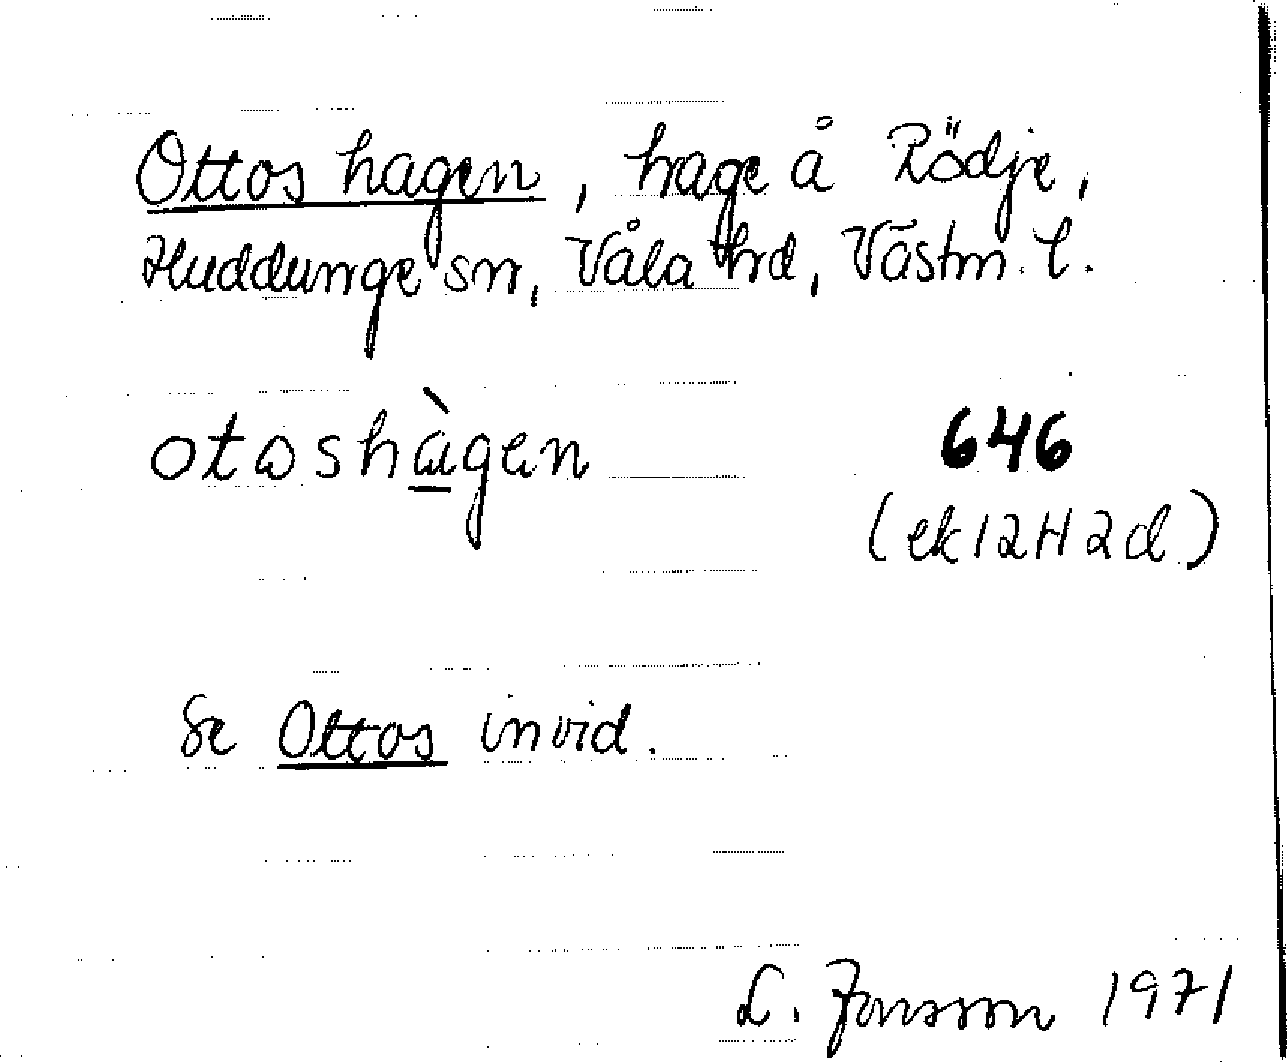 Ottos hagen, hage å Rödje,
Huddunge sn, Våla hd, Västm. l.
otoshàgen
646
(ek 12H2d)
Se Ottos invid.
L. Jonsson 1971